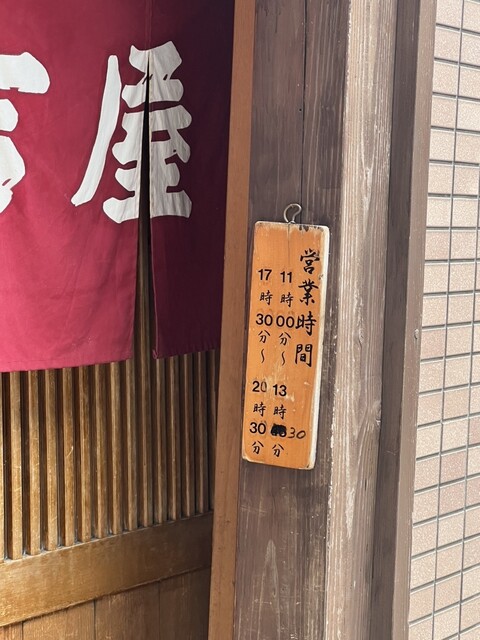 屋
営業時間
11時00分〜13時30分
17時30分〜20時30分